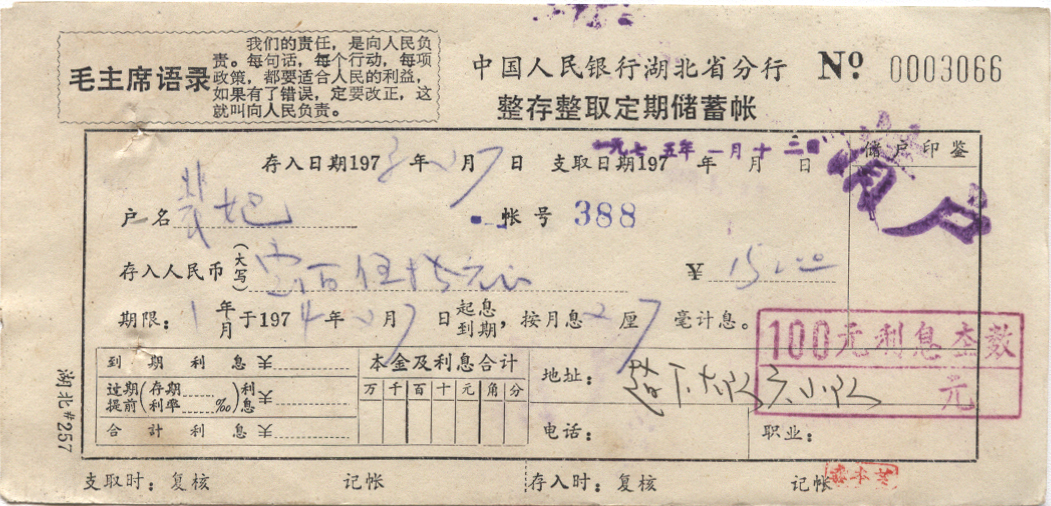 毛主席语录
我们的责任，是向人民负
责。每句话，每个行动，每项
政策，都要适合人民的利益，
如果有了错误，定要改正，这
就叫向人民负责。
中国人民银行湖北省分行 No 0003066
整存整取定期储蓄帐
存入日期197 年 月7日 支取日期197 年 月 日
一九七五年一月十三日
储户印鉴
户名 帐号 388
存入人民币(大写)壹百伍拾元 ¥150.00
期限：1年月于1974年2月7日起息到期，按月息2厘7毫计息。
100元利息查数
元
到期利息¥
过期提前(存期利率 ‰)利息¥
合计利息¥
本金及利息合计
万千百十元角分
地址：
电话：
职业：
湖北#257
支取时：复核 记帐 存入时：复核 记帐